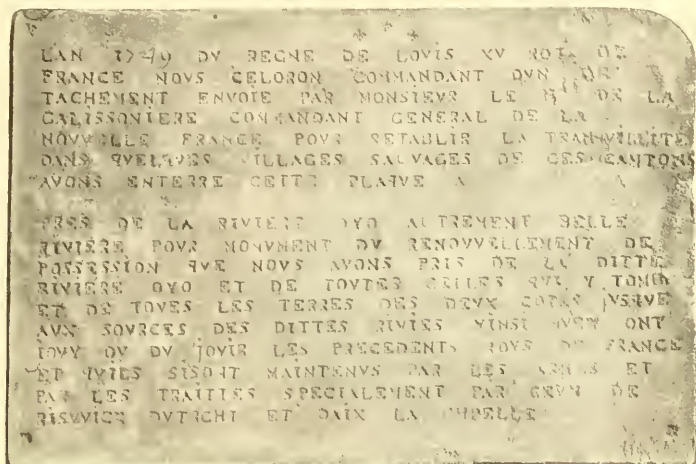 LAN 1749 DV REGNE DE LOVIS XV ROY DE
FRANCE NOVS CELORON COMMANDANT DVN DE
TACHEMENT ENVOIE PAR MONSIEVR LE Mis DE LA
GALISSONIERE COMMANDANT GENERAL DE LA
NOVVELLE FRANCE POVR RETABLIR LA TRANQVILLITE
DANS QVELQVES VILLAGES SAUVAGES DE CES CANTONS
AVONS ENTERRE CETTE PLAQVE A
PRES DE LA RIVIERE OYO AUTREMENT BELLE
RIVIERE POVR MONVMENT DV RENOVVELLEMENT DE
POSSESSION QVE NOVS AVONS PRIS DE LA DITTE
RIVIERE OYO ET DE TOVTES CELLES QVI Y TOMB
ET DE TOVES LES TERRES DES DEVX COTES JVSQVE
AVX SOVRCES DES DITTES RIVIES VINSI QVEN ONT
JOVY OV DV JOVIR LES PRECEDENTS ROYS DE FRANCE
ET QVILS SISONT MAINTENVS PAR LES ARMES ET
PAR LES TRAITTES SPECIALEMENT PAR CEVX DE
RISWICK DVTRCHT ET DAIX LA CHPELLE